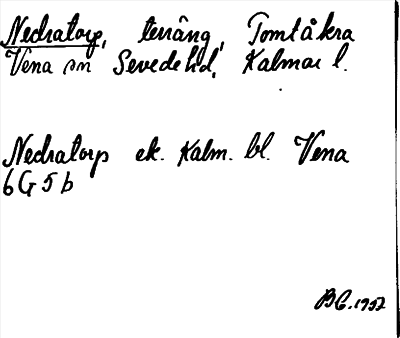 Nedratorp, terräng, Tomtåkra
Vena sn Sevede hd, Kalmar l.
Nedratorp ek. Kalm. bl. Vena
6G5b
BG. 1957